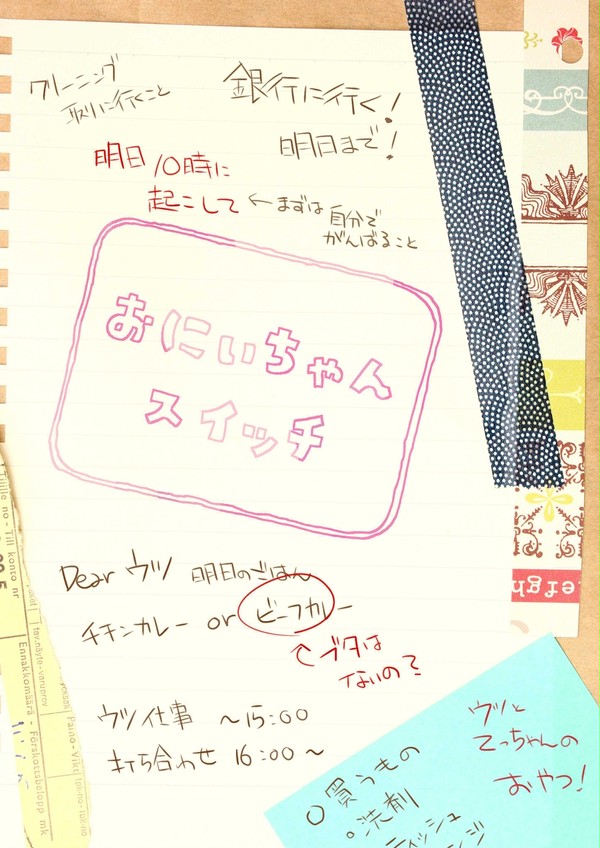 クリーニング
取りに行くこと
銀行に行く!
明日まで!
明日10時に
起こして
←まずは自分で
がんばること
おにいちゃん
スイッチ
Dear ウツ 明日のごはん
チキンカレー or ビーフカレー
ブタは
ないの?
ウツ仕事 ~15:00
打ち合わせ 16:00~
ウツと
てっちゃんの
おやつ!
○買うもの
○洗剤
ティッシュ
Tilille no - Till konto nr
Ennakkomäärä - Förskottsbelopp mk